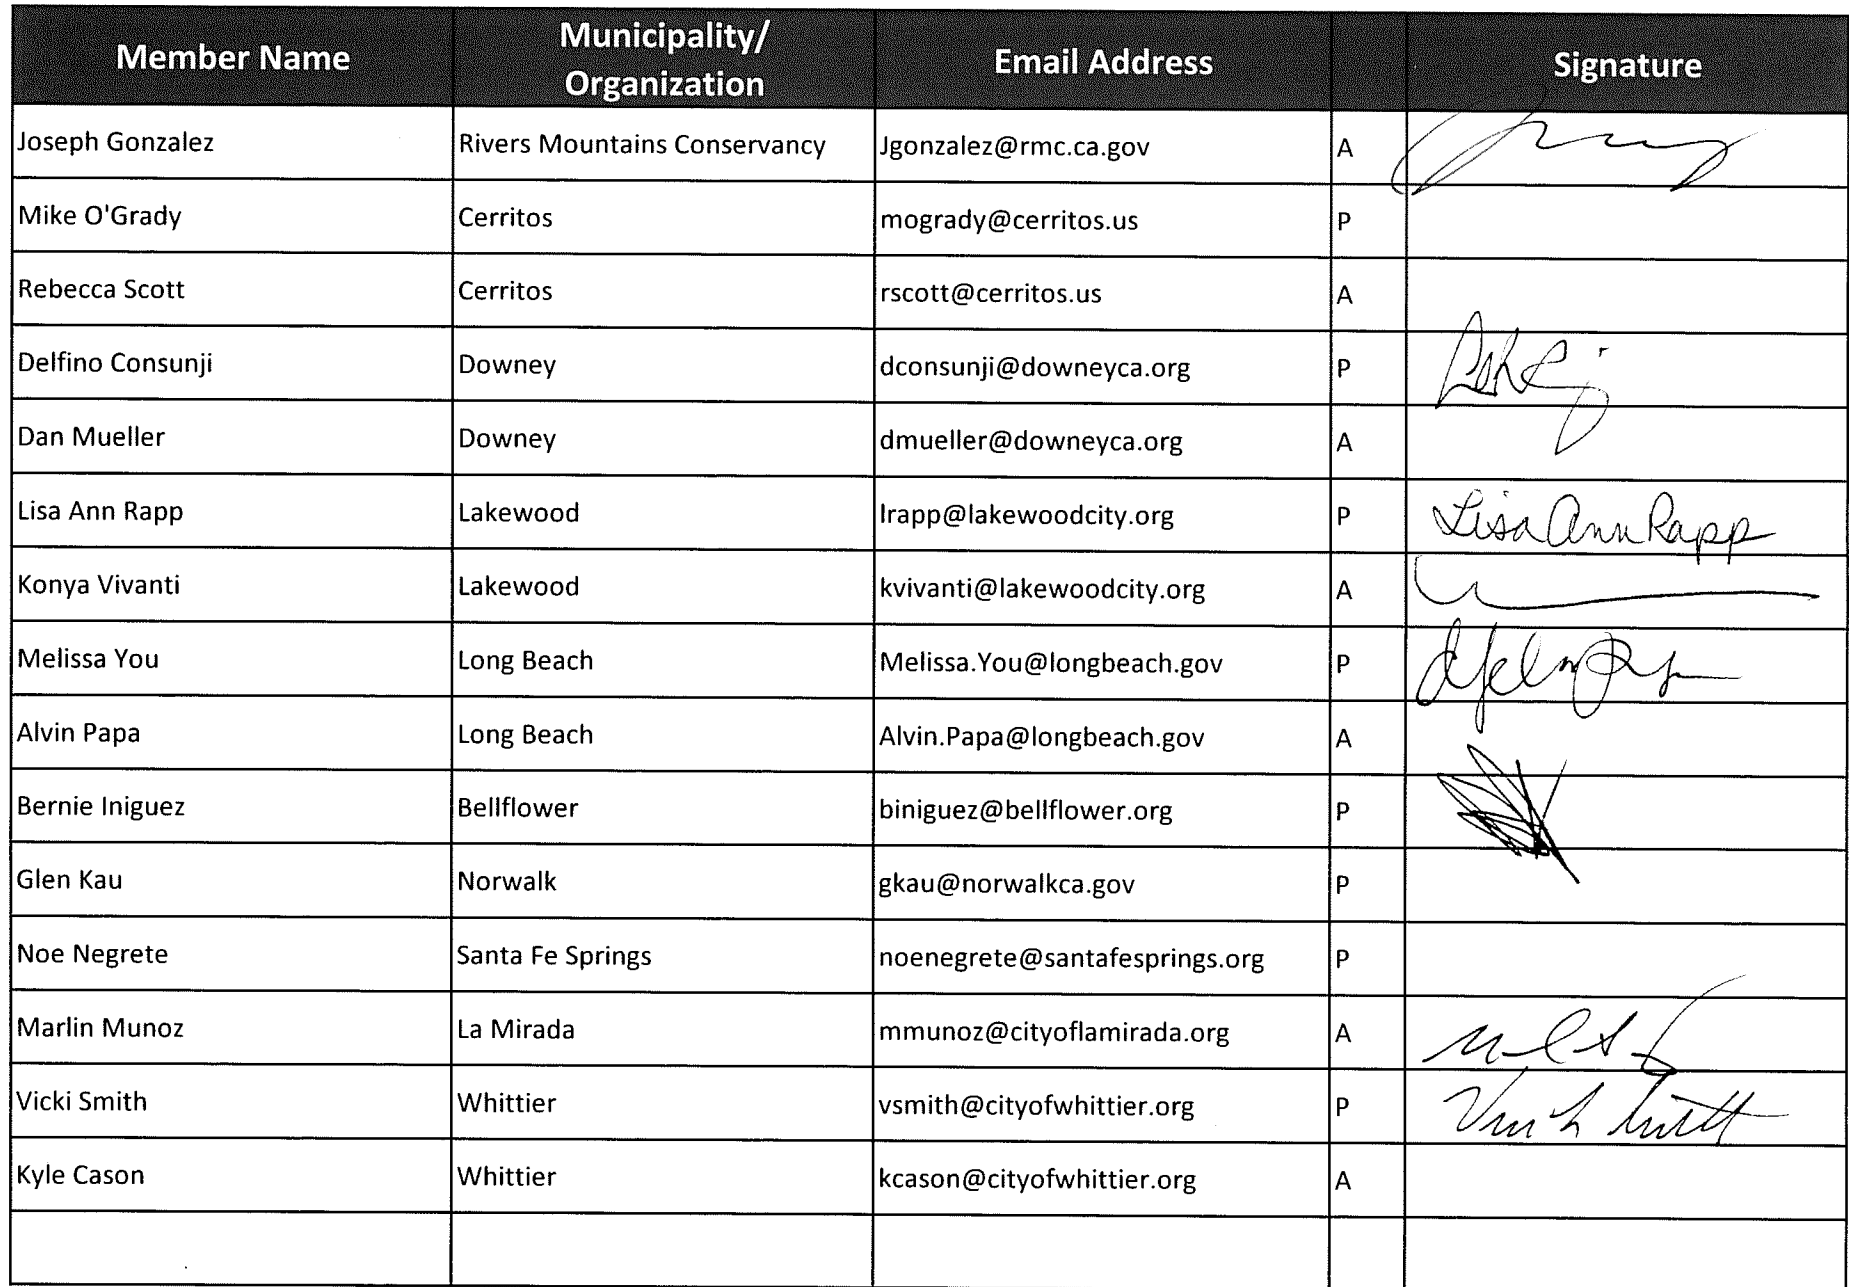 Member Name Municipality/ Organization Email Address Signature
Joseph Gonzalez Rivers Mountains Conservancy Jgonzalez@rmc.ca.gov A
Mike O'Grady Cerritos mogrady@cerritos.us P
Rebecca Scott Cerritos rscott@cerritos.us A
Delfino Consunji Downey dconsunji@downeyca.org P
Dan Mueller Downey dmueller@downeyca.org A
Lisa Ann Rapp Lakewood lrapp@lakewoodcity.org P Lisa Ann Rapp
Konya Vivanti Lakewood kvivanti@lakewoodcity.org A
Melissa You Long Beach Melissa.You@longbeach.gov P
Alvin Papa Long Beach Alvin.Papa@longbeach.gov A
Bernie Iniguez Bellflower biniguez@bellflower.org P
Glen Kau Norwalk gkau@norwalkca.gov P
Noe Negrete Santa Fe Springs noenegrete@santafesprings.org P
Marlin Munoz La Mirada mmunoz@cityoflamirada.org A
Vicki Smith Whittier vsmith@cityofwhittier.org P
Kyle Cason Whittier kcason@cityofwhittier.org A